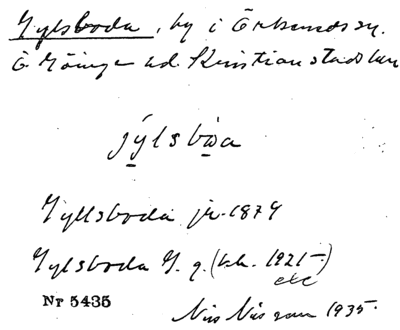 Gylsboda, by i Örkeneds sn.
Ö Göinge hd. Kristianstads län
jýlsbωa
Gyllsboda jr. 1879
Gylsboda G. g. (t.k. 1921–)
etc
Nr 5435
Nils Nilsson 1935.